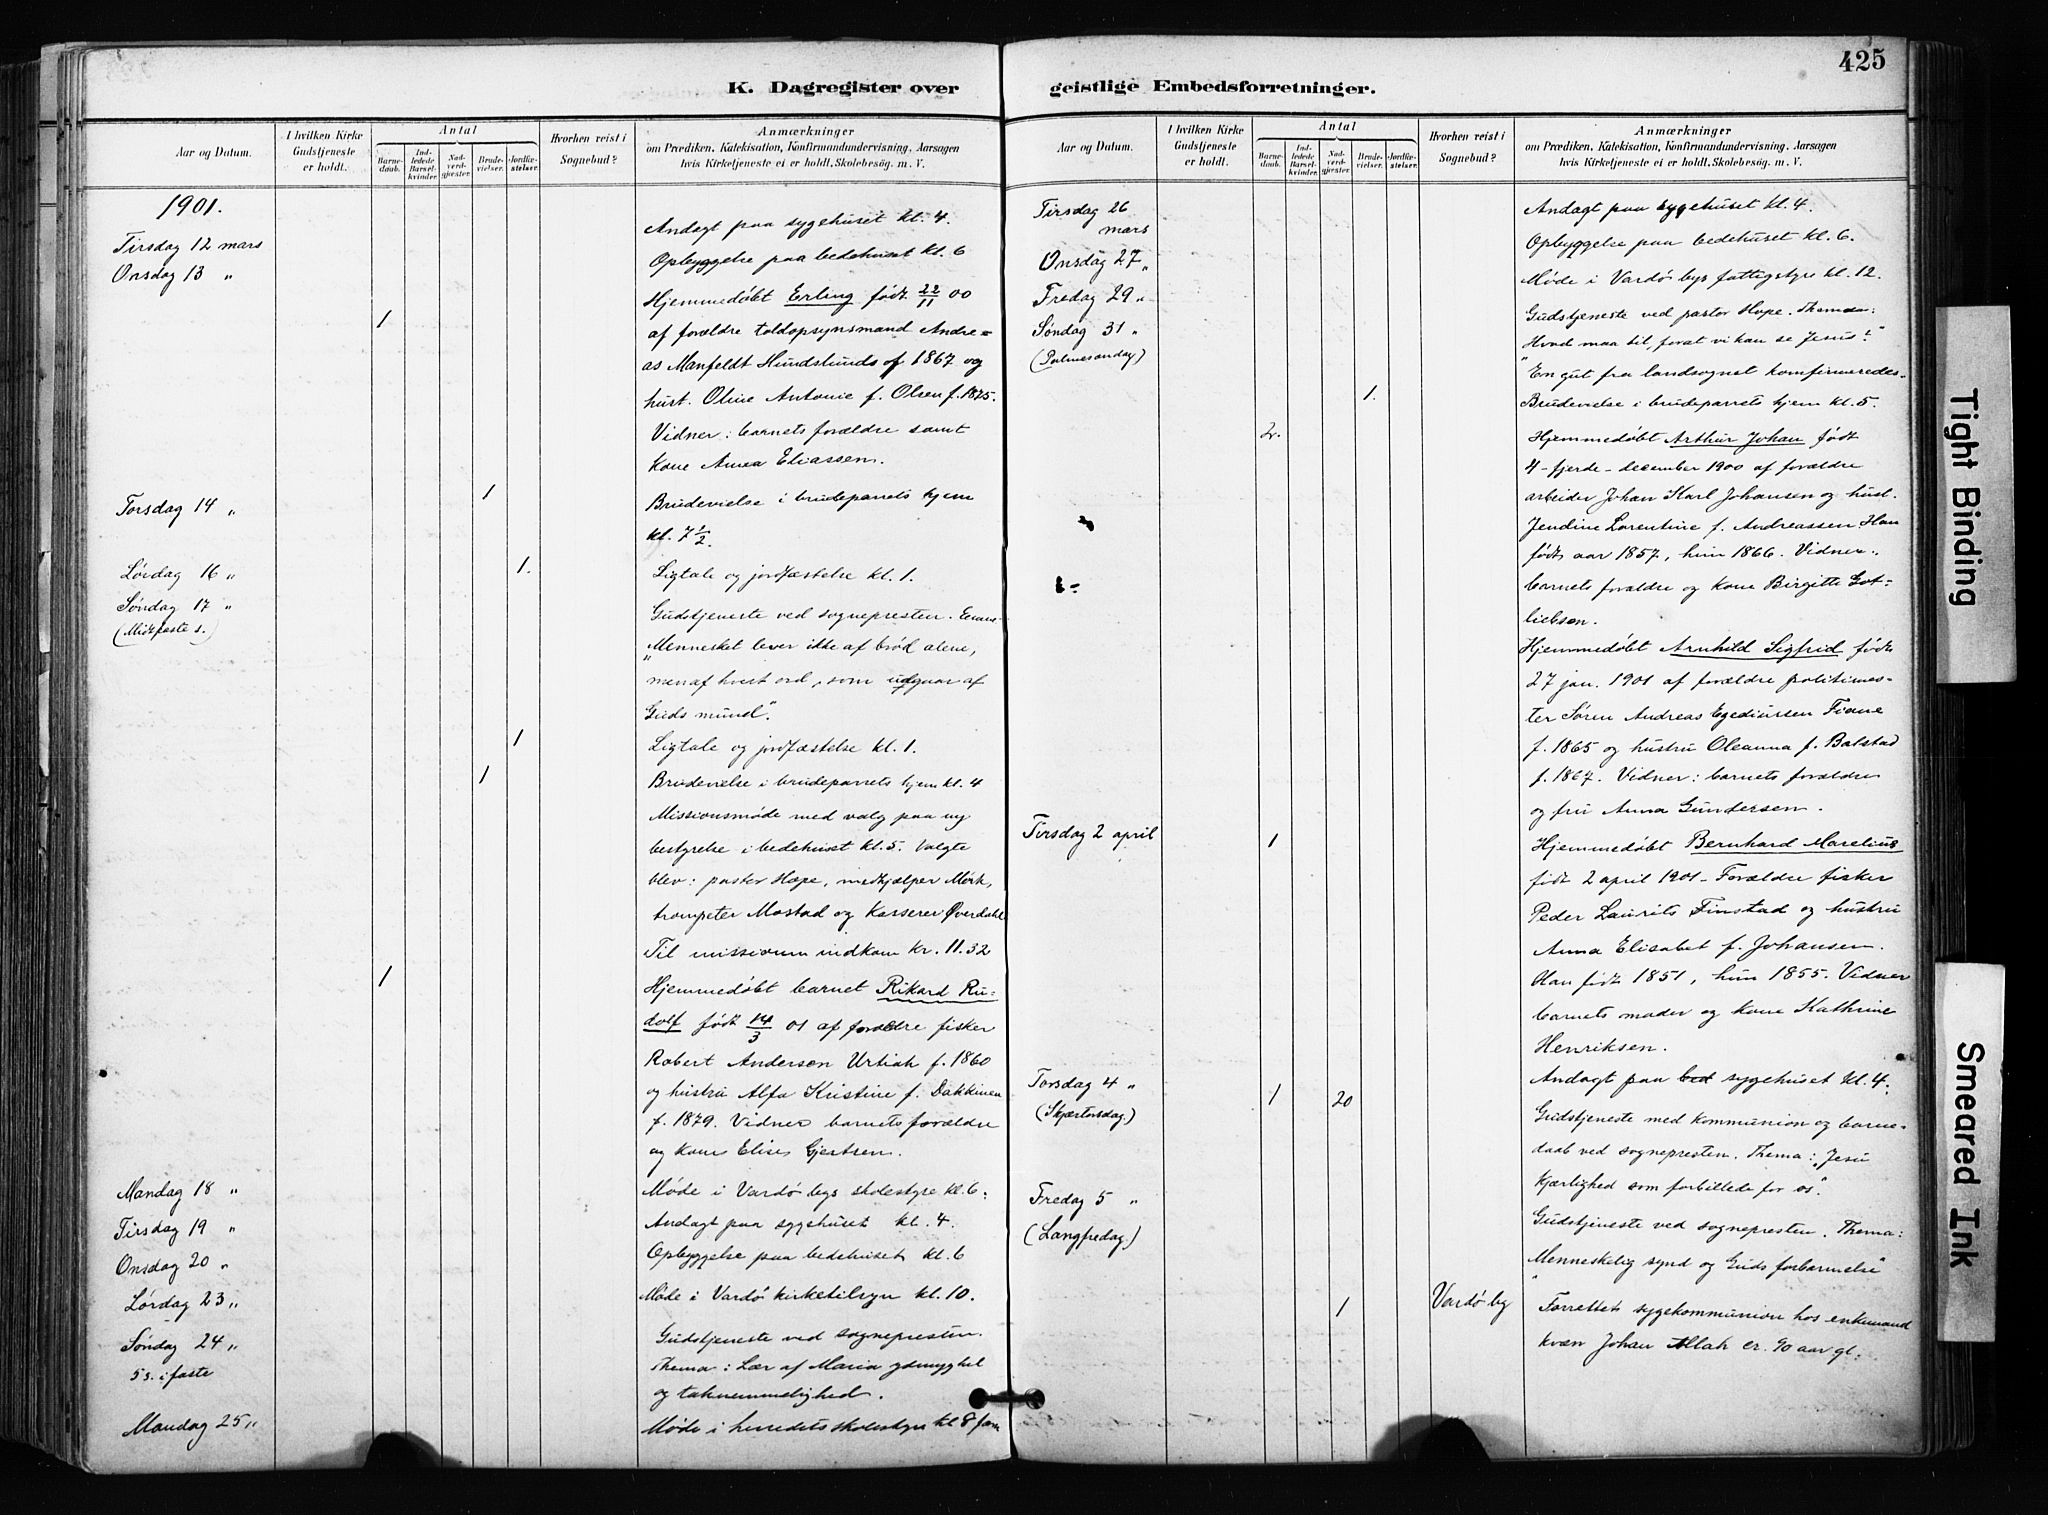 425
K. Dagregister over geistlige Embedsforretninger.
Aar og Datum.
I hvilken Kirke Gudstjeneste er holdt.
Antal
Barnedaab.
Indledede Barselkvinder.
Nadverdgjæster.
Brudevielser.
Jordfæstelser.
Hvorhen reist i Sognebud?
Anmærkninger
om Prædiken, Katekisation, Konfirmandundervisning, Aarsagen
hvis Kirketjeneste ei er holdt, Skolebesøg. m. V.
1901.
Tirsdag 12 mars
Andagt paa sygehuset kl. 4.
Onsdag 13 "
Opbyggelse paa bedehuset kl. 6
1
Hjemmedøbt Erling født 22/11 00
af forældre toldopsynsmand Andre=
as Manfeldt Hundslunds f 1867 og
hust. Oline Antonie f. Olsen f. 1875.
Vidner: barnets forældre samt
kone Anna Eliassen.
Torsdag 14 "
1
Brudevielse i brudeparrets hjem
kl. 7 1/2.
Lørdag 16 "
1.
Ligtale og jordfæstelse kl. 1.
Søndag 17 "
(Midtfaste s.)
Gudstjeneste ved sognepresten. Emne
"Mennesket lever ikke af brød alene,
men af hvert ord, som udgaar af
Guds mund".
1
Ligtale og jordfæstelse kl. 1.
1
Brudevielse i brudeparrets hjem kl. 4
Missionsmøde med valg paa ny
bestyrelse i bedehuset kl. 5. Valgte
blev: pastor Hope, medhjælper Mørk,
trompeter Mostad og kasserer Øverdahl
Til missionen indkom kr. 11.32
1
Hjemmedøbt barnet Rikard Ru=
dolf født 14/3 01 af forældre fisker
Robert Andersen Urtiah f. 1860
og hustru Alfa Kristine f. Dakkinen
f. 1879. Vidner barnets forældre
og kone Elise Gjertsen.
Mandag 18 "
Møde i Vardø bys skolestyre kl. 6.
Tirsdag 19 "
Andagt paa sygehuset kl. 4.
Onsdag 20 "
Opbyggelse paa bedehuset kl. 6
Lørdag 23 "
Møde i Vardø kirketilsyn kl. 10.
Søndag 24 "
5 s. i faste
Gudstjeneste ved sognepresten.
Thema: Lær af Maria ydmyghed
og taknemmelighed.
Mandag 25 "
Møde i herredets skolestyre kl 8 fm
Aar og Datum.
I hvilken Kirke Gudstjeneste er holdt.
Antal
Barnedaab.
Indledede Barselkvinder.
Nadverdgjæster.
Brudevielser.
Jordfæstelser.
Hvorhen reist i Sognebud?
Anmærkninger
om Prædiken, Katekisation, Konfirmandundervisning, Aarsagen
hvis Kirketjeneste ei er holdt, Skolebesøg. m. V.
Tirsdag 26 mars
Andagt paa sygehuset kl. 4.
Onsdag 27 "
Opbyggelse paa bedehuset kl. 6.
Fredag 29 "
Møde i Vardø bys fattigstyre kl. 12.
Søndag 31 "
(Palmesøndag)
Gudstjeneste ved pastor Hope. Thema:
Hvad maa til, forat vi kan se Jesus?"
"En gut fra landsognet konfirmeredes.
1.
Brudevielse i brudeparrets hjem kl. 5.
2.
Hjemmedøbt Arthur Johan født
4 - fjerde - december 1900 af forældre
arbeider Johan Karl Johansen og hust.
Jendine Lorentine f. Andreassen. Han
født aar 1857, hun 1866. Vidner:
barnets forældre og kone Birgitte Got=
liebsen.
Hjemmedøbt Arnhild Sigfrid født
27 jan. 1901 af forældre politimes=
ter Søren Andreas Egediussen Fiane
f. 1865 og hustru Oleanna f. Balstad
f. 1867. Vidner: barnets forældre
og fru Anna Gundersen.
Tirsdag 2 april
1
Hjemmedøbt Bernhard Marelius
født 2 april 1901. Forældre fisker
Peder Laurits Finstad og hustru
Anna Elisabet f. Johansen.
Han født 1851, hun 1855. Vidner
barnets moder og kone Kathrine
Henriksen.
Andagt paa sygehuset kl. 4.
Torsdag 4 "
(Skjærtorsdag.)
1
20
Gudstjeneste med kommunion og barne=
daab ved sognepresten. Thema: "Jesu
kjærlighed som forbillede for os".
Fredag 5 "
(Langfredag.)
Gudstjeneste ved sognepresten. Thema:
"Menneskelig synd og Guds forbarmelse"
1
Vardø by
Forrettet sygekommunion hos enkemand
kvæn Johan Allah er. 90 aar gl.
Tight Binding
Smeared Ink